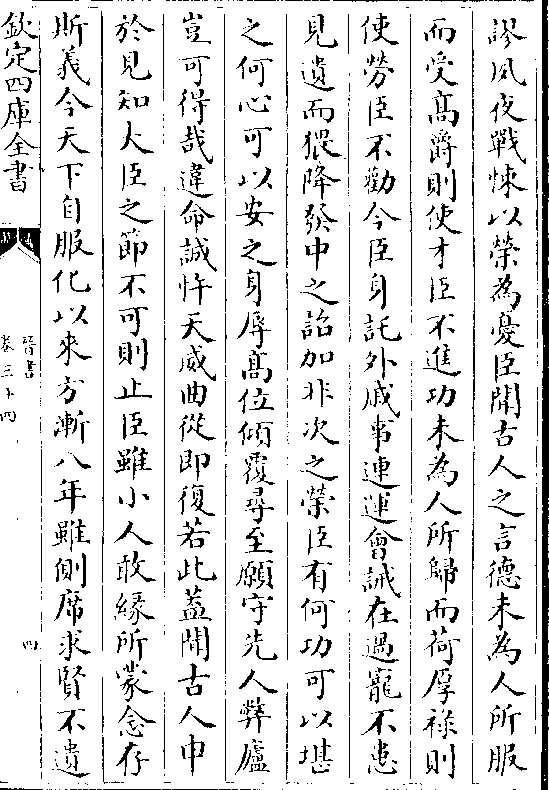 謬夙夜戰悚以榮為憂臣聞古人之言德未為人所服
而受髙爵則使才臣不進功未為人所歸而荷厚祿則
使勞臣不勸今臣身託外戚事連運會誡在過寵不患
見遺而猥降發中之詔加非次之榮臣有何功可以堪
之何心可以安之身辱髙位傾覆尋至願守先人弊廬
豈可得哉違命誠忤天威曲從即復若此蓋聞古人申
於見知大臣之節不可則止臣雖小人敢緣所蒙念存
斯義今天下自服化以來方漸八年雖側席求賢不遺
欽定四庫全書
晉書
卷三十四
四